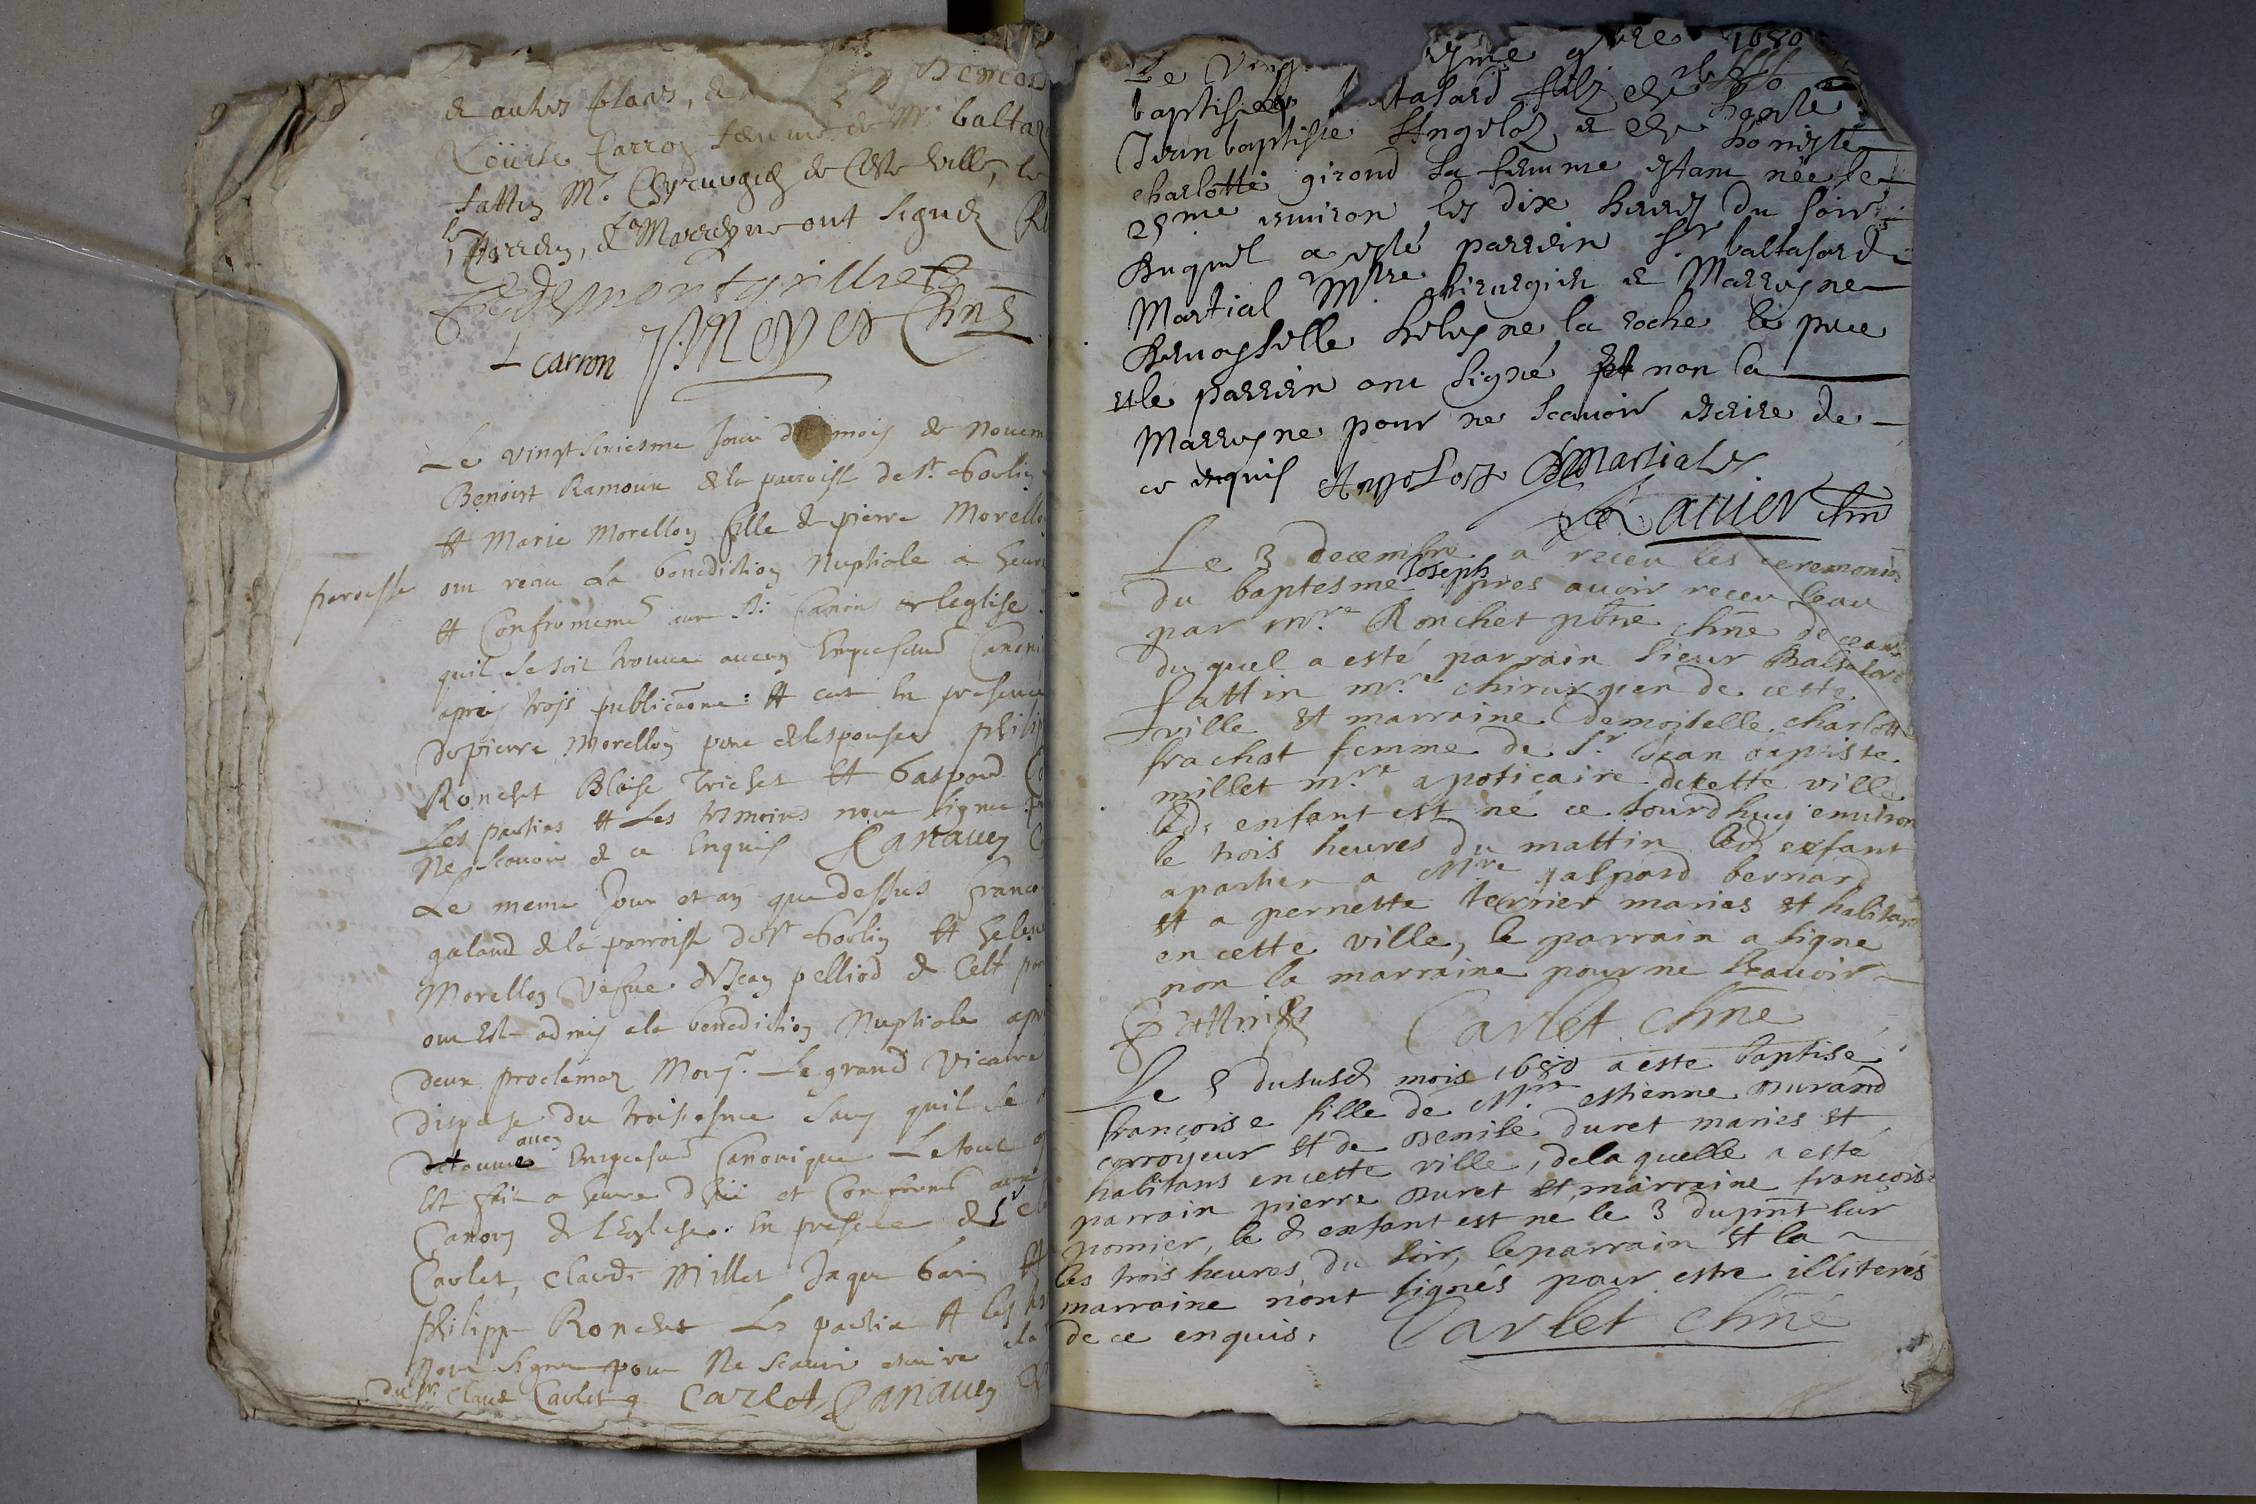 & autres places, & Demois
Loüise Carron femme de Mr. baltaz
fattin Mr. Chyrurgien de Ceste ville, le
Parrein, & la Marreyne ont signez
L carron Meyer Chnē
Le vingt seziesme Jour du mois de Novem
Benoist Ramoux & la parroisse de st. sorlin
et Marie Morellon fille de pierre Morello
paroisse
ont receu La benediction Nuptiale a heure
et Conformement aux Canons de leglise
quil se soit trouvé aucun Empeschemt Canoni
apres trois publications: et ce en presence
de pierre Morellon pere de lespouse philip
Ronchet Blaise Trichet et Gaspard
Les parties et Les tesmoins nont signé
Ne scavoir de ce Enquis Canauey
Le meme Jour et an que dessus Franco
galand de la parroisse de st sorlin et helene
Morellon vefve de Jean pelliod de Cest par
ont Esté admis a la benediction Nuptiale apr
deux proclamaõ Monsr. Le grand vicaire
dispensé du troisiesme sans quil se
aucun
Empeschemt Canonique Le tout
Est fait a heure et Conformt aux
Canons de l'Eglise. En presence de sr cla
Carlet, Claude Millet Jaque barin et
philippe Ronchet Les parties et les tes
nont signé pour Ne scavoir escrire
du sr. Claude Carlet Carlet Canauey
Le Ving sme 9bre 1680
baptisé baltasard filz de
Jean baptiste Angeloz, & de honeste
charlotte girond sa femme estant née le
25me environ les dix heures du soir
Auquel a esté parrein Sr baltasard
Martial Mtre chirurgien & Marreyne
Demoyselle heleyne la roche le pere
et le parrein ont signé et non la
Marreyne pour ne scavoir escrire de
ce enquis Angeloz Martial
Lavier chnē
Le 3 decembre a receu les ceremonies
du baptesme Joseph apres avoir receu l'eau
par mre. Ronchet pbrē chnē de ceans
du quel a esté parrain sieur Baltasard
fattin mre. chirurgien de cette
ville et marraine Demoiselle charlotte
frachat femme de Sr. Jean baptiste
millet mre apoticaire de cette ville
led. enfant est né ce Jourd'huy environ
le trois heures du mattin led enfant
apartien a Mre gaspard bernard
et a pernette terrier maries et habitans
en cette ville, le parrain a signe
non la marraine pour ne scavoir
fattin Carlet Chnē
Le 5 dususd mois 1680 a este baptisé
françoise fille de Mre estienne Durand
corroyeur et de Denise duret maries et
habitans en cette ville, de la quelle a esté
parrain pierre Duret et marraine françoise
pomier, le d enfant est ne le 3 du pnt sur
les trois heures du soir, le parrain et la
marraine n'ont signés pour estre illiterés
de ce enquis. Carlet chnē